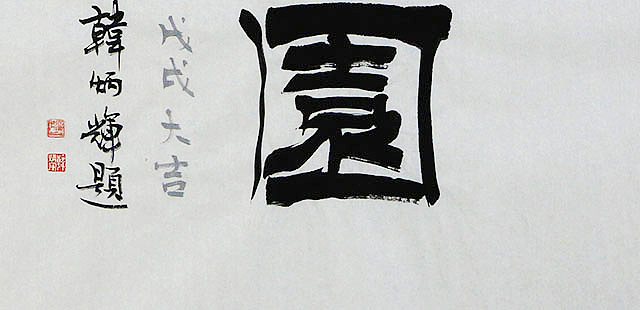 園
戊戌大吉
韓炳輝題